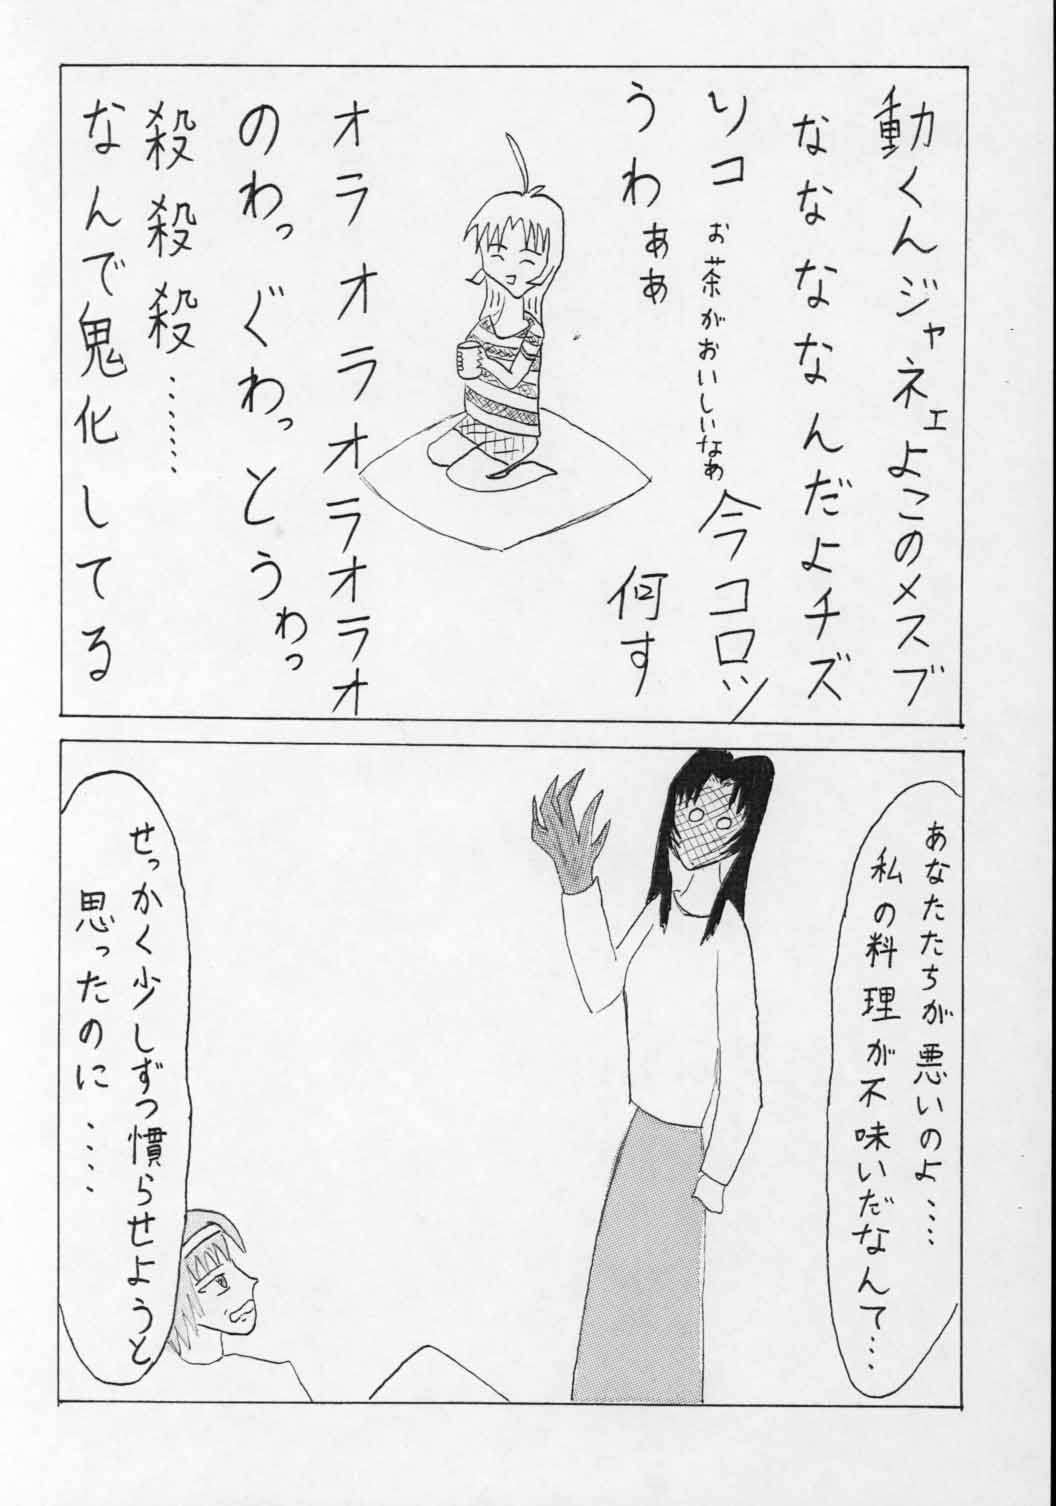 動くんジャネェよこのメスブ
なななななんだよチズ
ソコ
お茶がおいしいなぁ
今コロッ
うわぁぁ
何す
オラオラオラオラオラオ
のわっぐわっとうわっ
殺殺殺……
なんで鬼化してる
あなたたちが悪いのよ……
私の料理が不味いだなんて…
せっかく少しずつ慣らせようと
思ったのに……